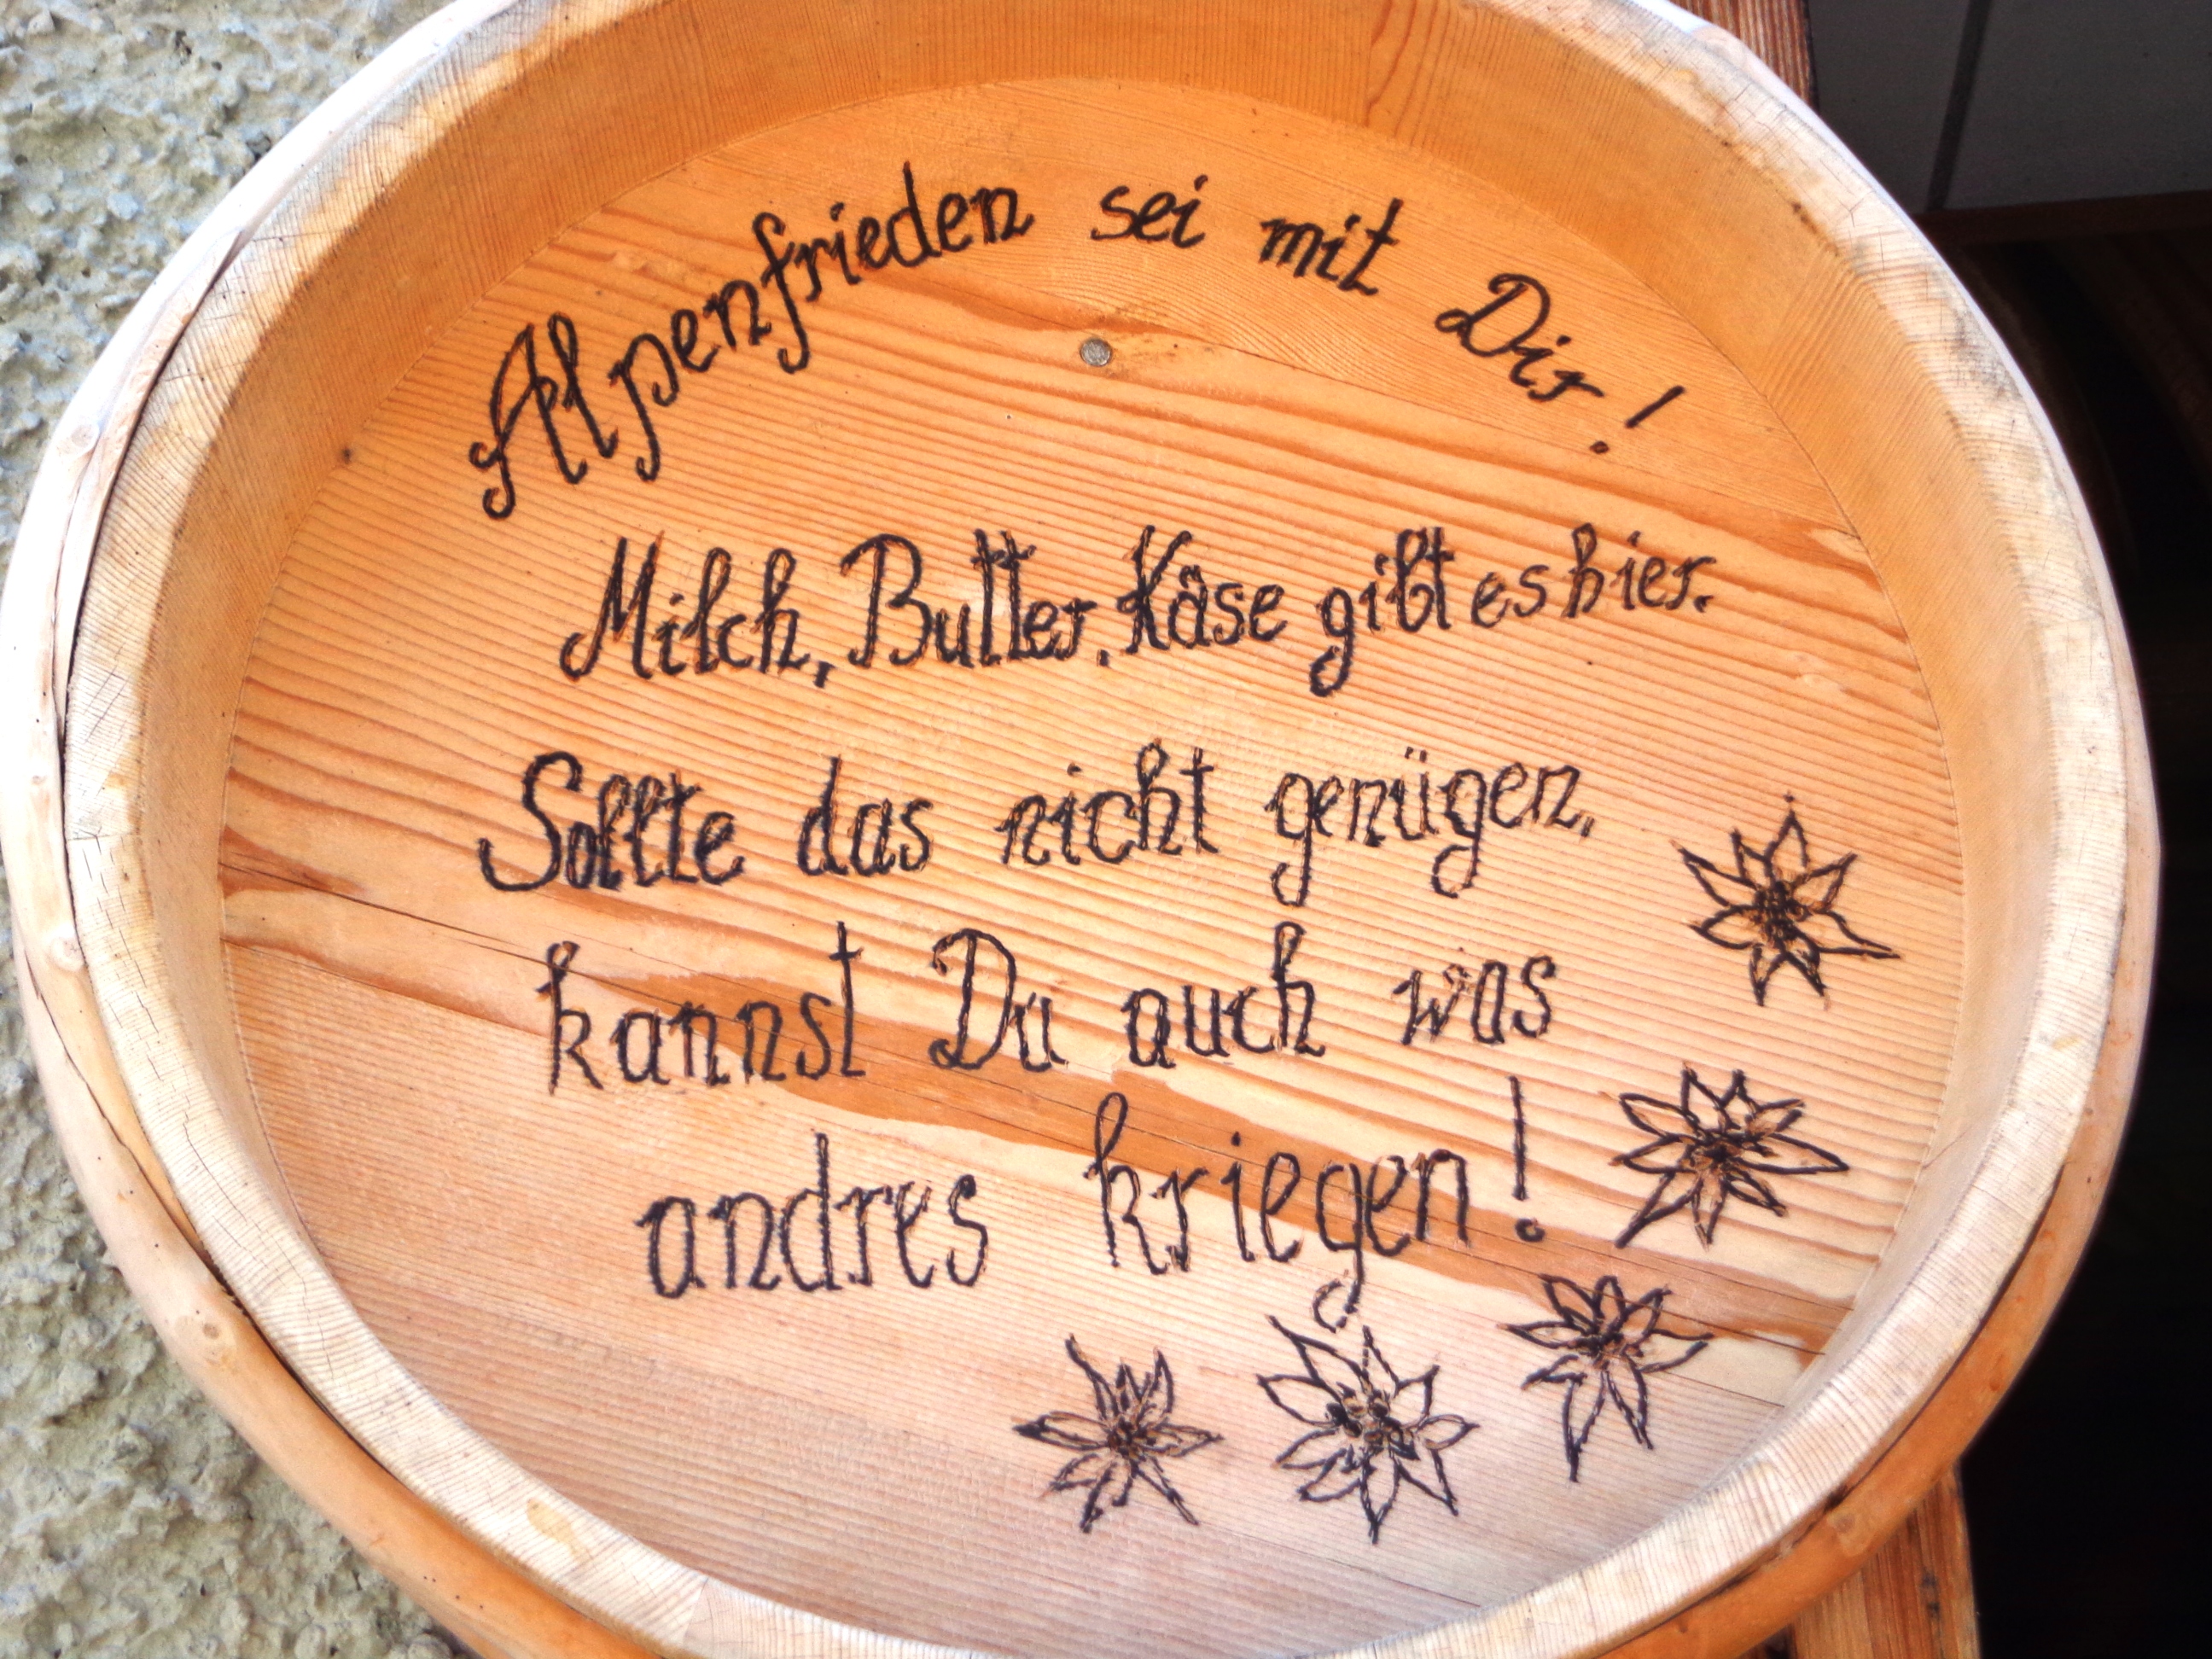 Alpenfrieden sei mit Dir!
Milch, Butter, Käse gibt es hier.
Sollte das nicht genügen,
kannst Du auch was
andres kriegen!